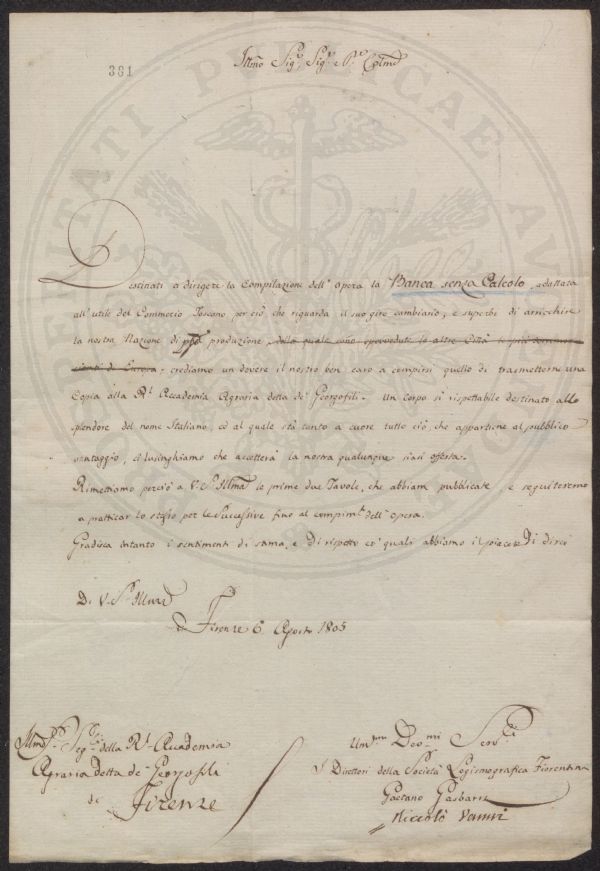 381
Illmo Sigr Sigr Pne Colmo
Destinati a dirigere la Compilazione dell' opera la Banca senza Calcolo, adattata
all' utile del Commercio Toscano per ciò che riguarda il suo giro cambiario, e superbi di arricchire
la nostra Nazione di produzione, della quale sono sprovvedute le altre Città le più commer
cianti di Europa, crediamo un dovere il nostro ben caro a compirsi quello di trasmetterne una
Copia alla Rl Accademia Agraria detta de' Georgofili. Un Corpo sì rispettabile destinato allo
splendore del nome Italiano, ed al quale stà tanto a cuore tutto ciò, che appartiene al pubblico
vantaggio, ci lusinghiamo che accetterà la nostra qualunque siasi offerta.
Rimettiamo perciò a V. S. Illma le prime due Tavole, che abbiam pubblicate, e seguiteremo
a pratticar lo stesso per le Successive fino al compimo dell' opera.
Gradisca intanto i sentimenti di stima, e di rispetto co' quali abbiamo il piacere di dirci
Di V. S. Illma
Firenze 6 Agosto 1805
Illmo Sigr Segrio della Rl Accademia
Agraria detta de' Georgofili
di Firenze
Umi Devmi Servi
I Direttori della Società Logismografica Fiorentina
Gaetano Gasbarri
Niccolò Vanni
SOCIETATI PUBLICAE